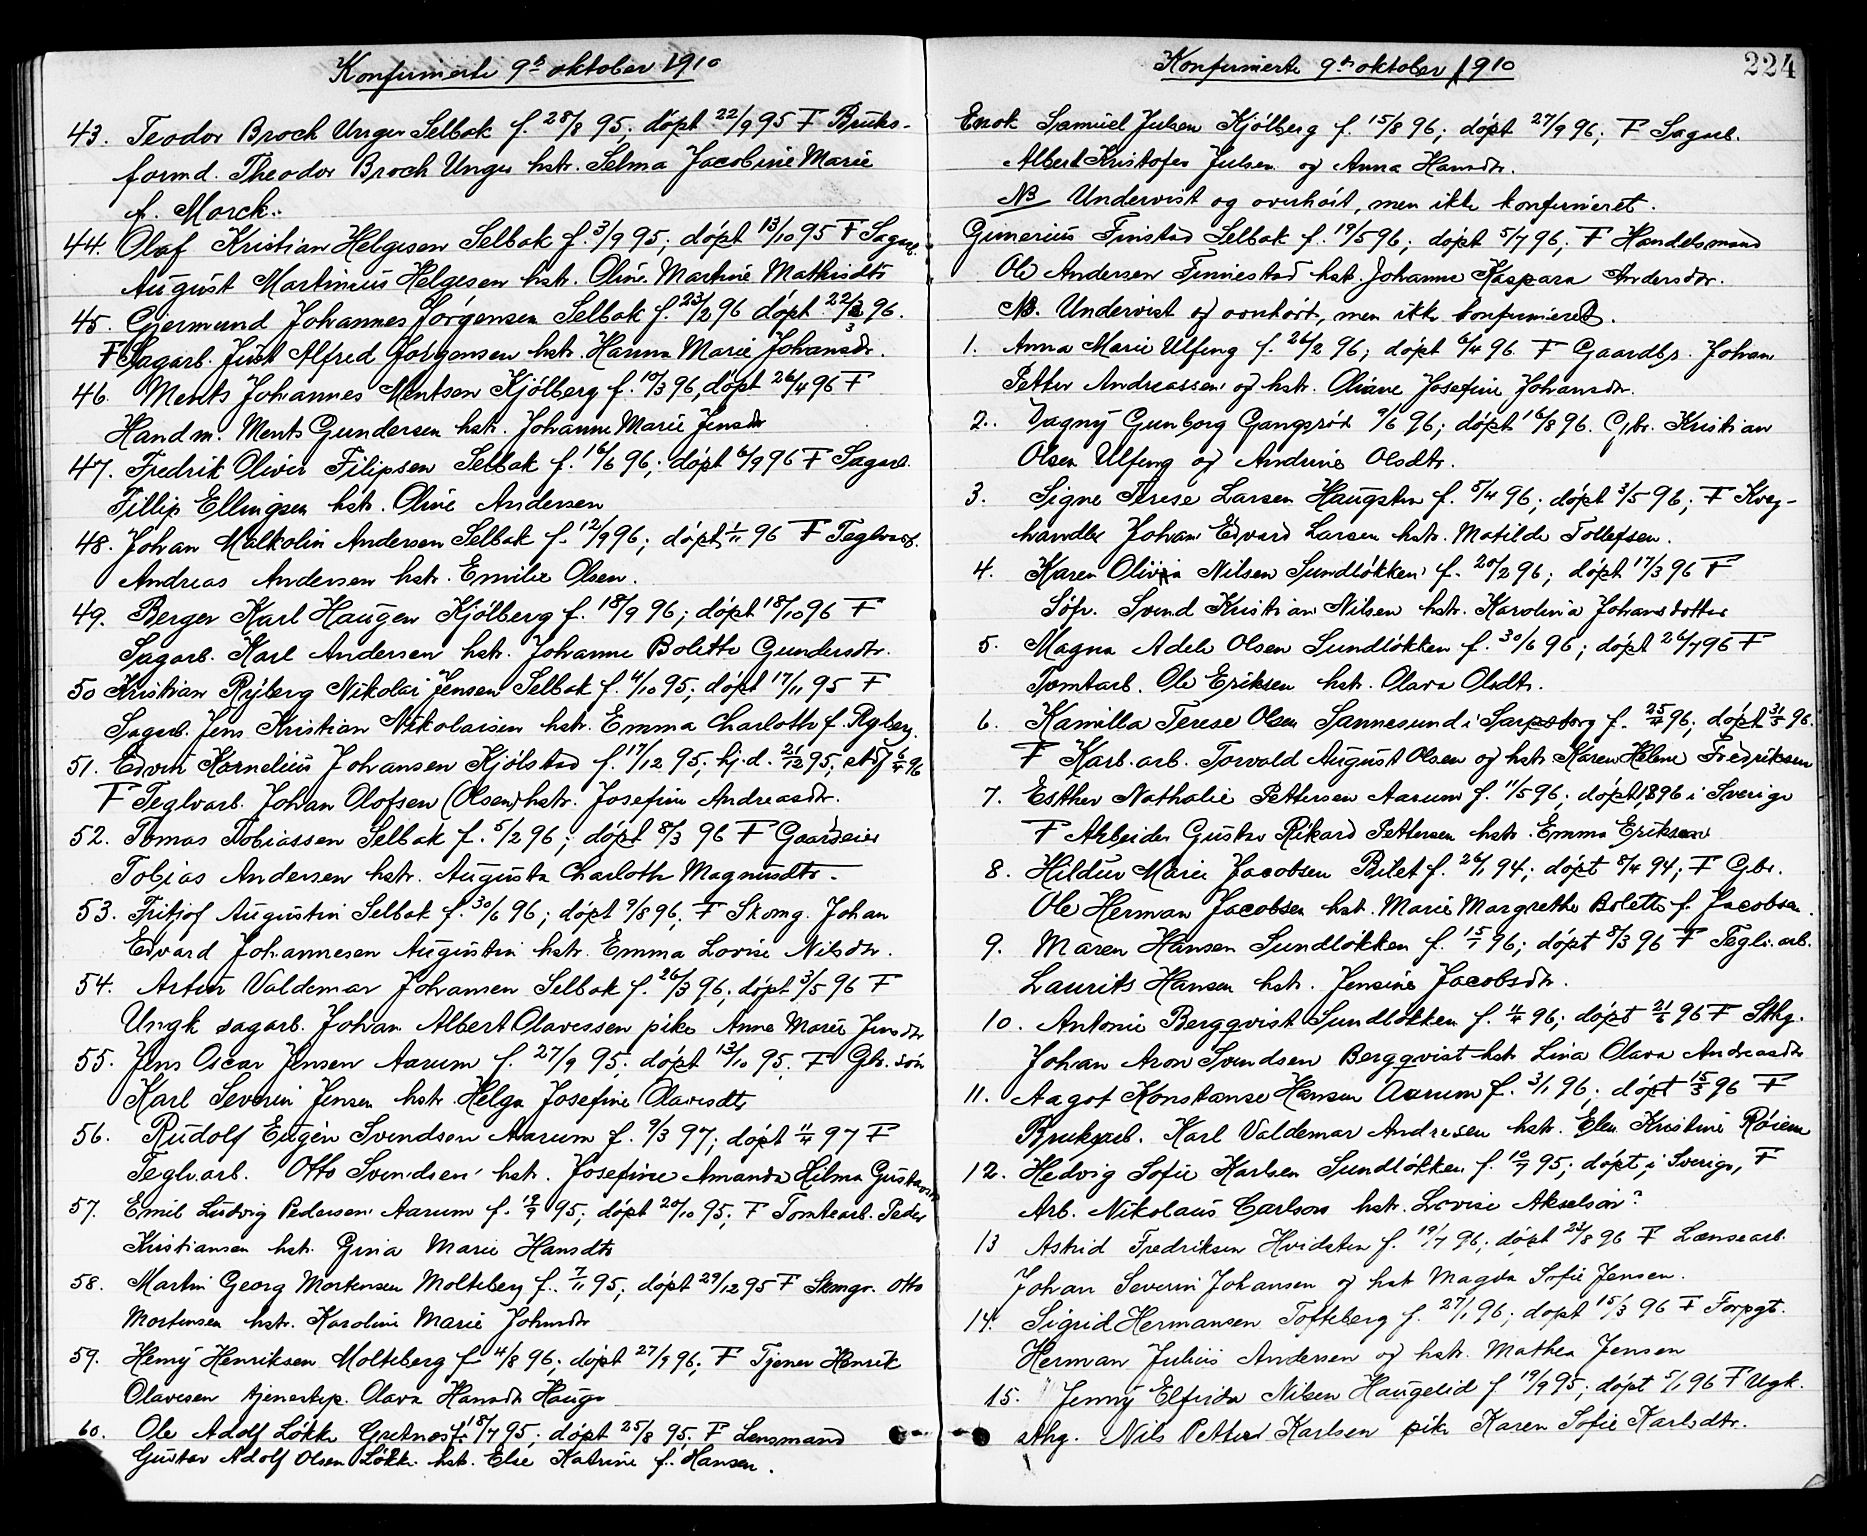 Konfirmerte 9de oktober 1910
43. Teodor Broch Unger Selbak f. 28/8 95. døpt 22/9 95 F Bruks-
formd. Theodor Broch Unger hstr. Selma Jacobine Marie
f. Morck.
44. Olaf Kristian Helgesen Selbak f. 3/9 95; døpt 13/10 95 F Sagarb.
August Martinius Helgesen hstr. Oline Martine Mathisdtr
45. Gjermund Johannes Jørgensen Selbak f. 23/2 96 døpt 22/3 96.
F Sagarb. Just Alfred Jørgensen hstr. Hanna Marie Johansdr.
46. Ments Johannes Mentsen Kjølberg f. 10/3 96, døpt 26/4 96 F
Handm. Ments Gundersen hstr. Johanne Marie Jensdr
47. Fredrik Oliver Filipsen Selbak f. 16/6 96; døpt 6/9 96 F Sagarb.
Fillip Ellingsen hstr. Oline Andersen
48. Johan Malkolin Andersen Selbak f. 12/9 96; døpt 1/11 96 F Teglarb.
Andreas Andersen hstr. Emilie Olsen.
49. Berger Karl Haugen Kjølberg f. 18/9 96; døpt 18/10 96 F
Sagarb. Karl Andersen hstr. Johanne Bolette Gundersdtr.
50 Kristian Ryberg Nikolai Jensen Selbak f. 4/10 95; døpt 17/11 95 F
Sagarb. Jens Kristian Nikolaisen hstr. Emma Charlotte f. Ryberg.
51. Edvin Kornelius Johansen Kjølstad f. 17/12 95; hj.d. 21/12 95; st 6/4 96
F Teglvarb. Johan Olofsen (Olsen) hstr. Josefine Andreasdtr.
52. Tomas Tobiassen Selbak f. 5/2 96; døpt 8/3 96 F Gaardeier
Tobias Andersen hstr. Augusta Charlotte Magnusdtr.
53. Fritjof Augustin Selbak f. 30/6 96; døpt 9/8 96; F Skomg. Johan
Edvard Johannesen Augustin hstr. Emma Lovise Nilsdr.
54. Artur Valdemar Johansen Selbak f. 26/3 96; døpt 3/5 96 F
Ungk sagarb. Johan Albert Olavessen pike Anne Marie Jensdr
55. Jens Oscar Jensen Aarum f. 27/9 95; døpt 13/10 95; F Gbr. søn
Karl Severin Jensen hstr. Helga Josefine Olavesdtr
56. Rudolf Eugen Svendsen Aarum f. 9/3 97; døpt 11/4 97 F
Teglv.arb. Otto Svendsen hstr. Josefine Amanda Hilma Gustavsdr
57. Emil Ludvig Pedersen Aarum f. 19/9 95; døpt 20/10 95; F Tomtearb. Peder
Kristiansen hstr. Grina Marie Hansdtr
58. Martin Georg Mortensen Molteberg f. 7/11 95; døpt 29/12 95 F Skomgr. Otto
Mortensen hstr. Karoline Marie Johnsdr
59. Henry Henriksen Molteberg f 4/8 96; døpt 27/9 96; F Tjener Henrik
Olavesen tjenestep. Olava Hansdr Hauge
60. Ole Adolf Løkke Gretnes f. 18/7 95; døpt 25/8 95; F Lensmand
Gustav Adolf Olsen Løkke hstr. Else Katrine f. Hansen.
Konfirmerte 9de oktober 1910
224
Enok Samuel Julsen Kjølberg f. 15/8 96; døpt 27/9 96; F Sagarb.
Albert Kristofer Julsen og Anna Hansdtr.
NB Undervist og overhørt, men ikke konfirmeret.
Gunerius Finstad Selbak f. 19/5 96; døpt 5/7 96; F Handelsmand
Ole Andersen Finnestad hst. Johanne Kaspara Andersdr.
NB. Undervist og overhørt, men ikke konfirmeret.
1. Anna Marie Ulfeng f. 26/2 96; døpt 6/4 96. F Gaardbr. Johan
Petter Andreassen og hstr. Oliane Josefine Johansdtr.
2. Dagny Gunborg Gangsrød 9/6 96; døpt 16/8 96. Gbr. Kristian
Olsen Ulfeng og Andrine Olsdtr.
3. Signe Terese Larsen Haugsten f. 5/4 96; døpt 3/5 96; F Kveg-
handler Johan Edvard Larsen hstr. Matilde Tollefsen.
4. Karen Olivia Nilsen Sundløkken f. 20/2 96; døpt 17/3 96 F
Søfr. Svend Kristian Nilsen hstr. Karolina Johansdotter
5. Magna Adele Olsen Sundløkken f. 30/6 96; døpt 26/7 96 F
Tomtarb. Ole Eriksen hstr. Olava Olsdtr.
6. Kamilla Terese Olsen Sannesund i Sarpsborg f. 25/4 96; døpt 31/5 96.
F Karb. arb. Torvald August Olsen og hstr Karen Helene Fredriksen
7. Esther Nathalie Pettersen Aarum f. 11/5 96; døpt 1896 i Sverige
F Arbeider Gustav Rikard Pettersen hstr. Emma Eriksen
8. Hildur Marie Jacobsen Bilet f. 26/1 94; døpt 8/4 94; F Gbr.
Ole Herman Jacobsen hst. Marie Margrethe Bolette f. Jacobsen.
9. Maren Hansen Sundløkken f. 15/1 96; døpt 8/3 96 F Teglv. arb.
Laurits Hansen hstr. Jensine Jacobsdr.
10. Antonie Bergqvist Sundløkken f. 11/4 96; døpt 21/6 96 F Sthg.
Johan Aron Svendsen Bergqvist hstr Lina Olava Andreasdtr
11. Aagot Konstanse Hansen Aarum f. 3/1 96; døpt 15/3 96 F
Bruksarb. Karl Valdemar Andresen hstr. Elen Kristine Røiem
12. Hedvig Sofie Karlsen Sundløkken f. 10/7 95; døpt i Sverige, F
Arb. Nikolaus Carlson hstr. Lovise Akselson?
13 Astrid Fredriksen Hvidsten f. 19/7 96; døpt 24/8 96 F Lænsearb.
Johan Severin Johansen og hst Magda Sofie Jensen.
14. Sigrid Hermansen Tofteberg f. 27/1 96; døpt 15/3 96 F Forpgt.
Herman Julius Andersen og hstr. Mathea Jensen
15. Jenny Elfrida Nilsen Haugelid f 19/9 95; døpt 5/1 96 F Ugk.
sthg. Nils Petter Karlsen pike Karen Sofie Karlsdtr.